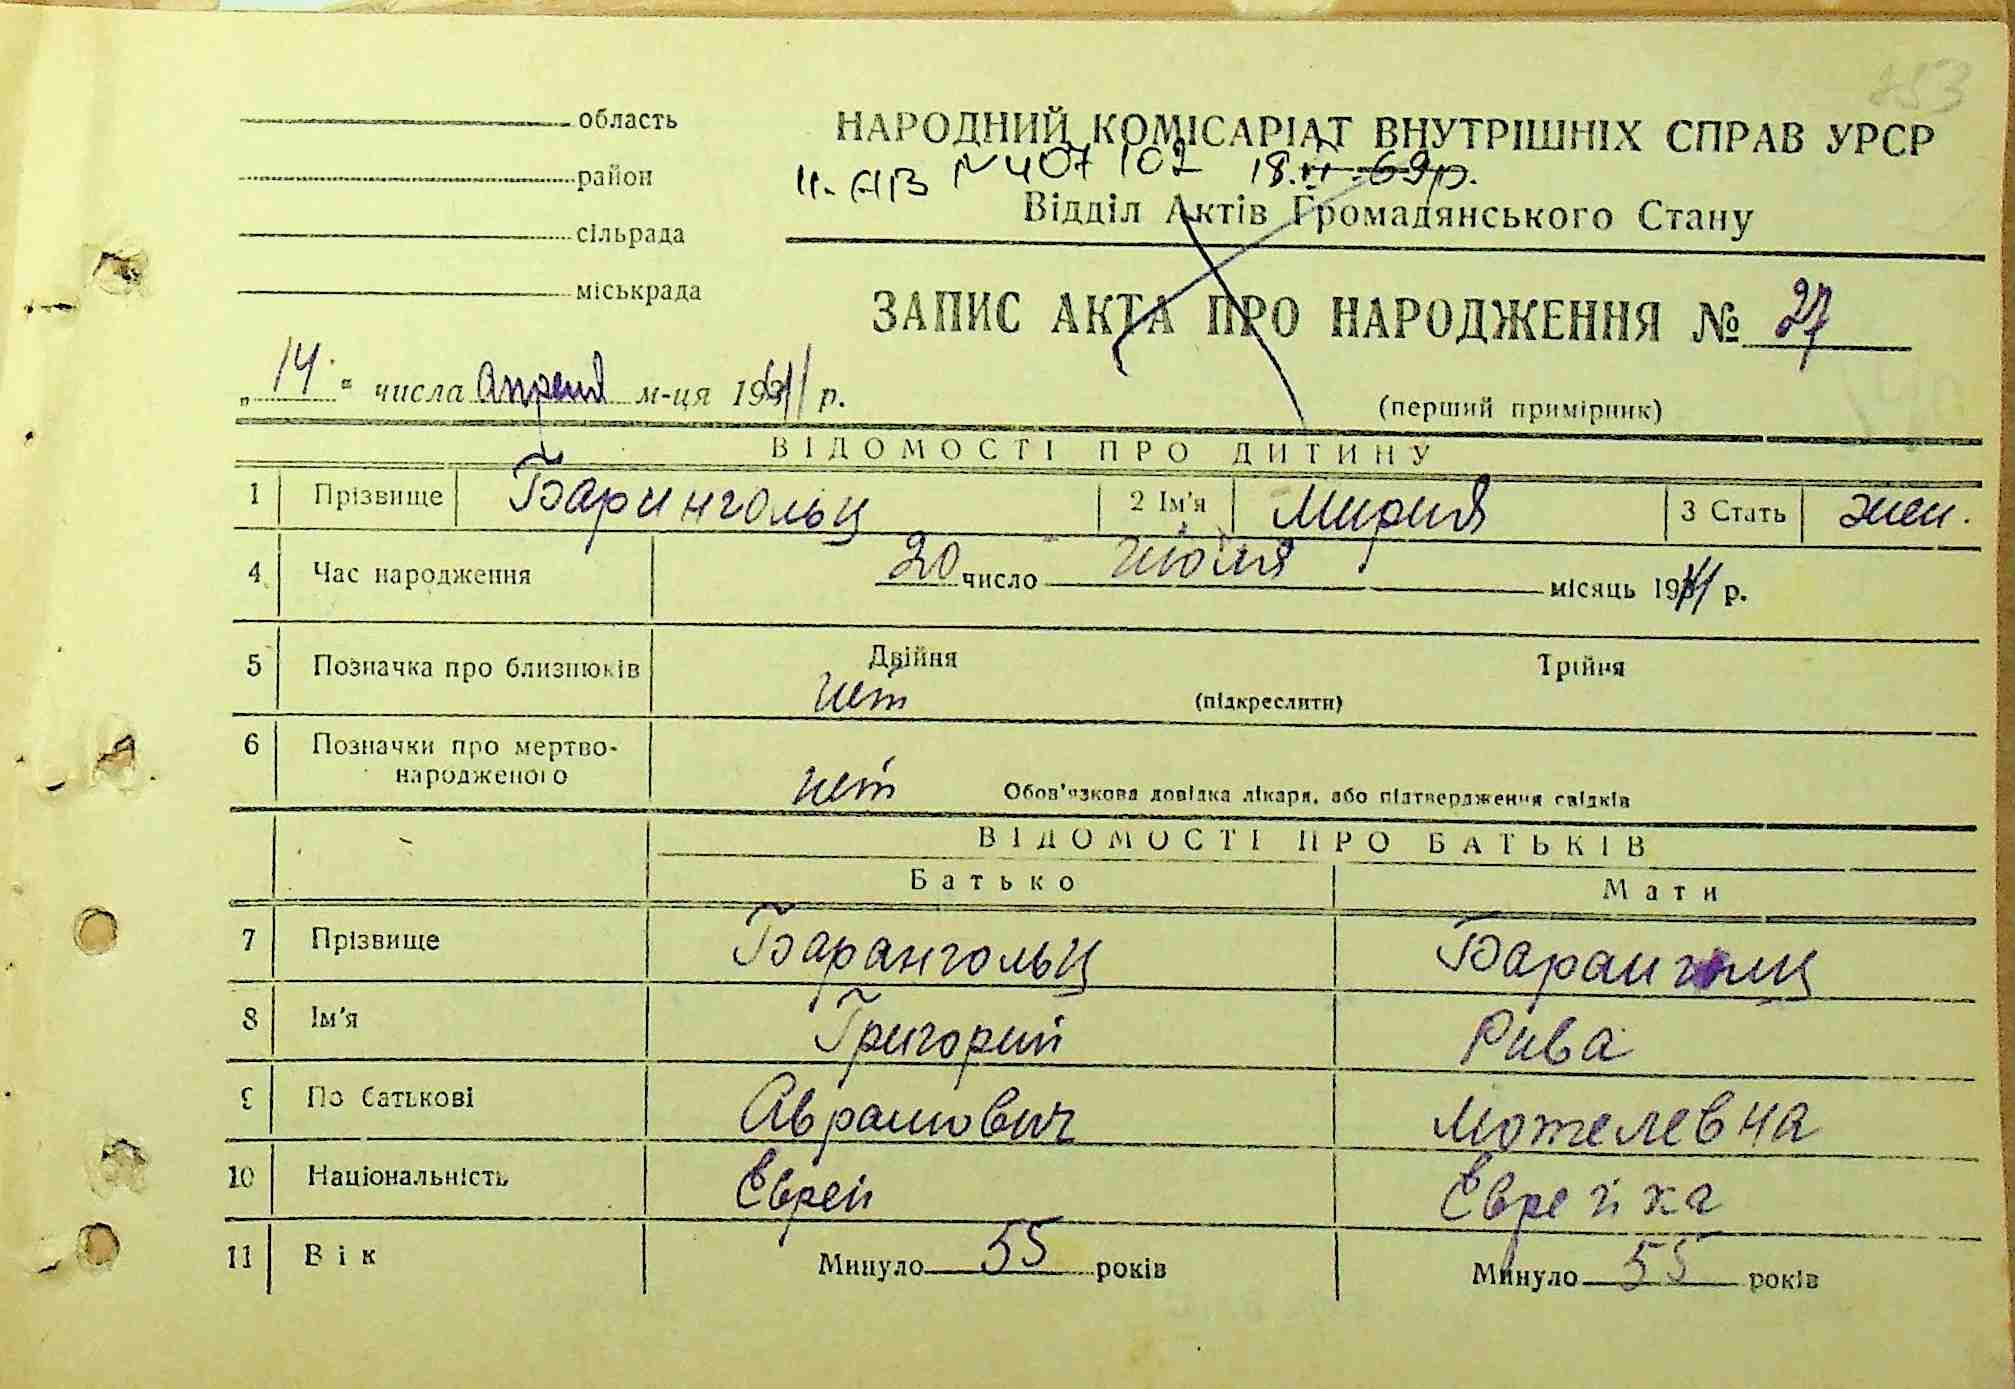 253
область
НАРОДНИЙ КОМІСАРІАТ ВНУТРІШНІХ СПРАВ УРСР
район
№ 407102 18.II.69р.
Відділ Актів Громадянського Стану
сільрада
міськрада
ЗАПИС АКТА ПРО НАРОДЖЕННЯ № 27
„14“ числа апреля м-ця 1941 р.
(перший примірник)
ВІДОМОСТІ ПРО ДИТИНУ
1 Прізвище Барингольц 2 Ім'я Мирия 3 Стать жен.
4 Час народження 20 число июля місяць 19 р.
5 Позначка про близнюків Двійня Трійня
нет (підкреслити)
6 Позначки про мертво-
народженого нет Обов'язкова довідка лікаря, або підтвердження свідків
ВІДОМОСТІ ПРО БАТЬКІВ
Батько Мати
7 Прізвище Барангольц Барангольц
8 Ім'я Григорий Рива
9 По батькові Аврамович Мотелевна
10 Національність Еврей Еврейка
11 Вік Минуло 55 років Минуло 55 років